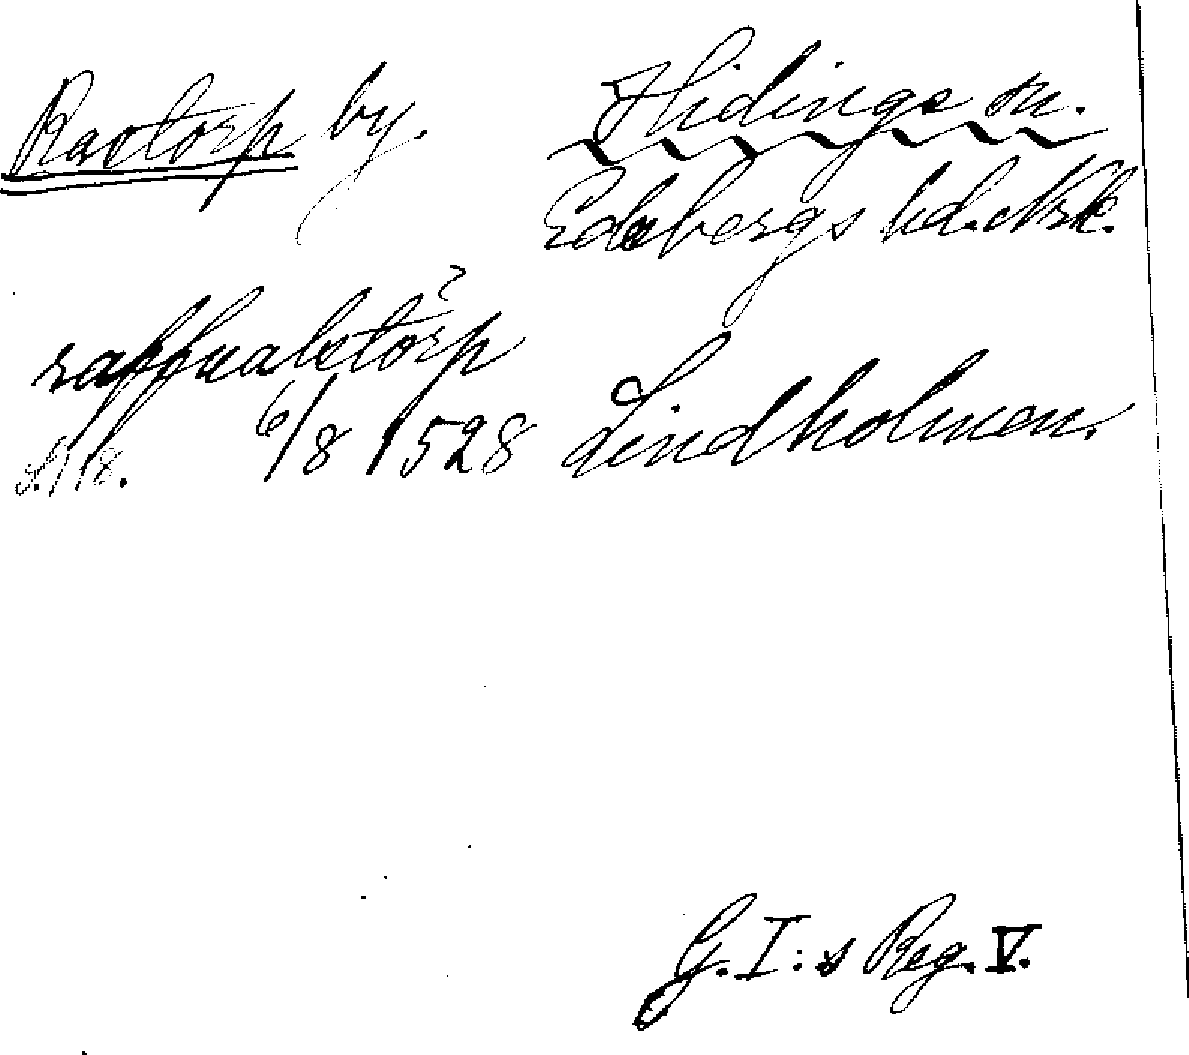 Ravtorp by. Hidinge sn.
Edsbergs hd. Nrk.
raffualztorp ?
6/8 1528 Lindholmen.
G. I:s Reg. V.